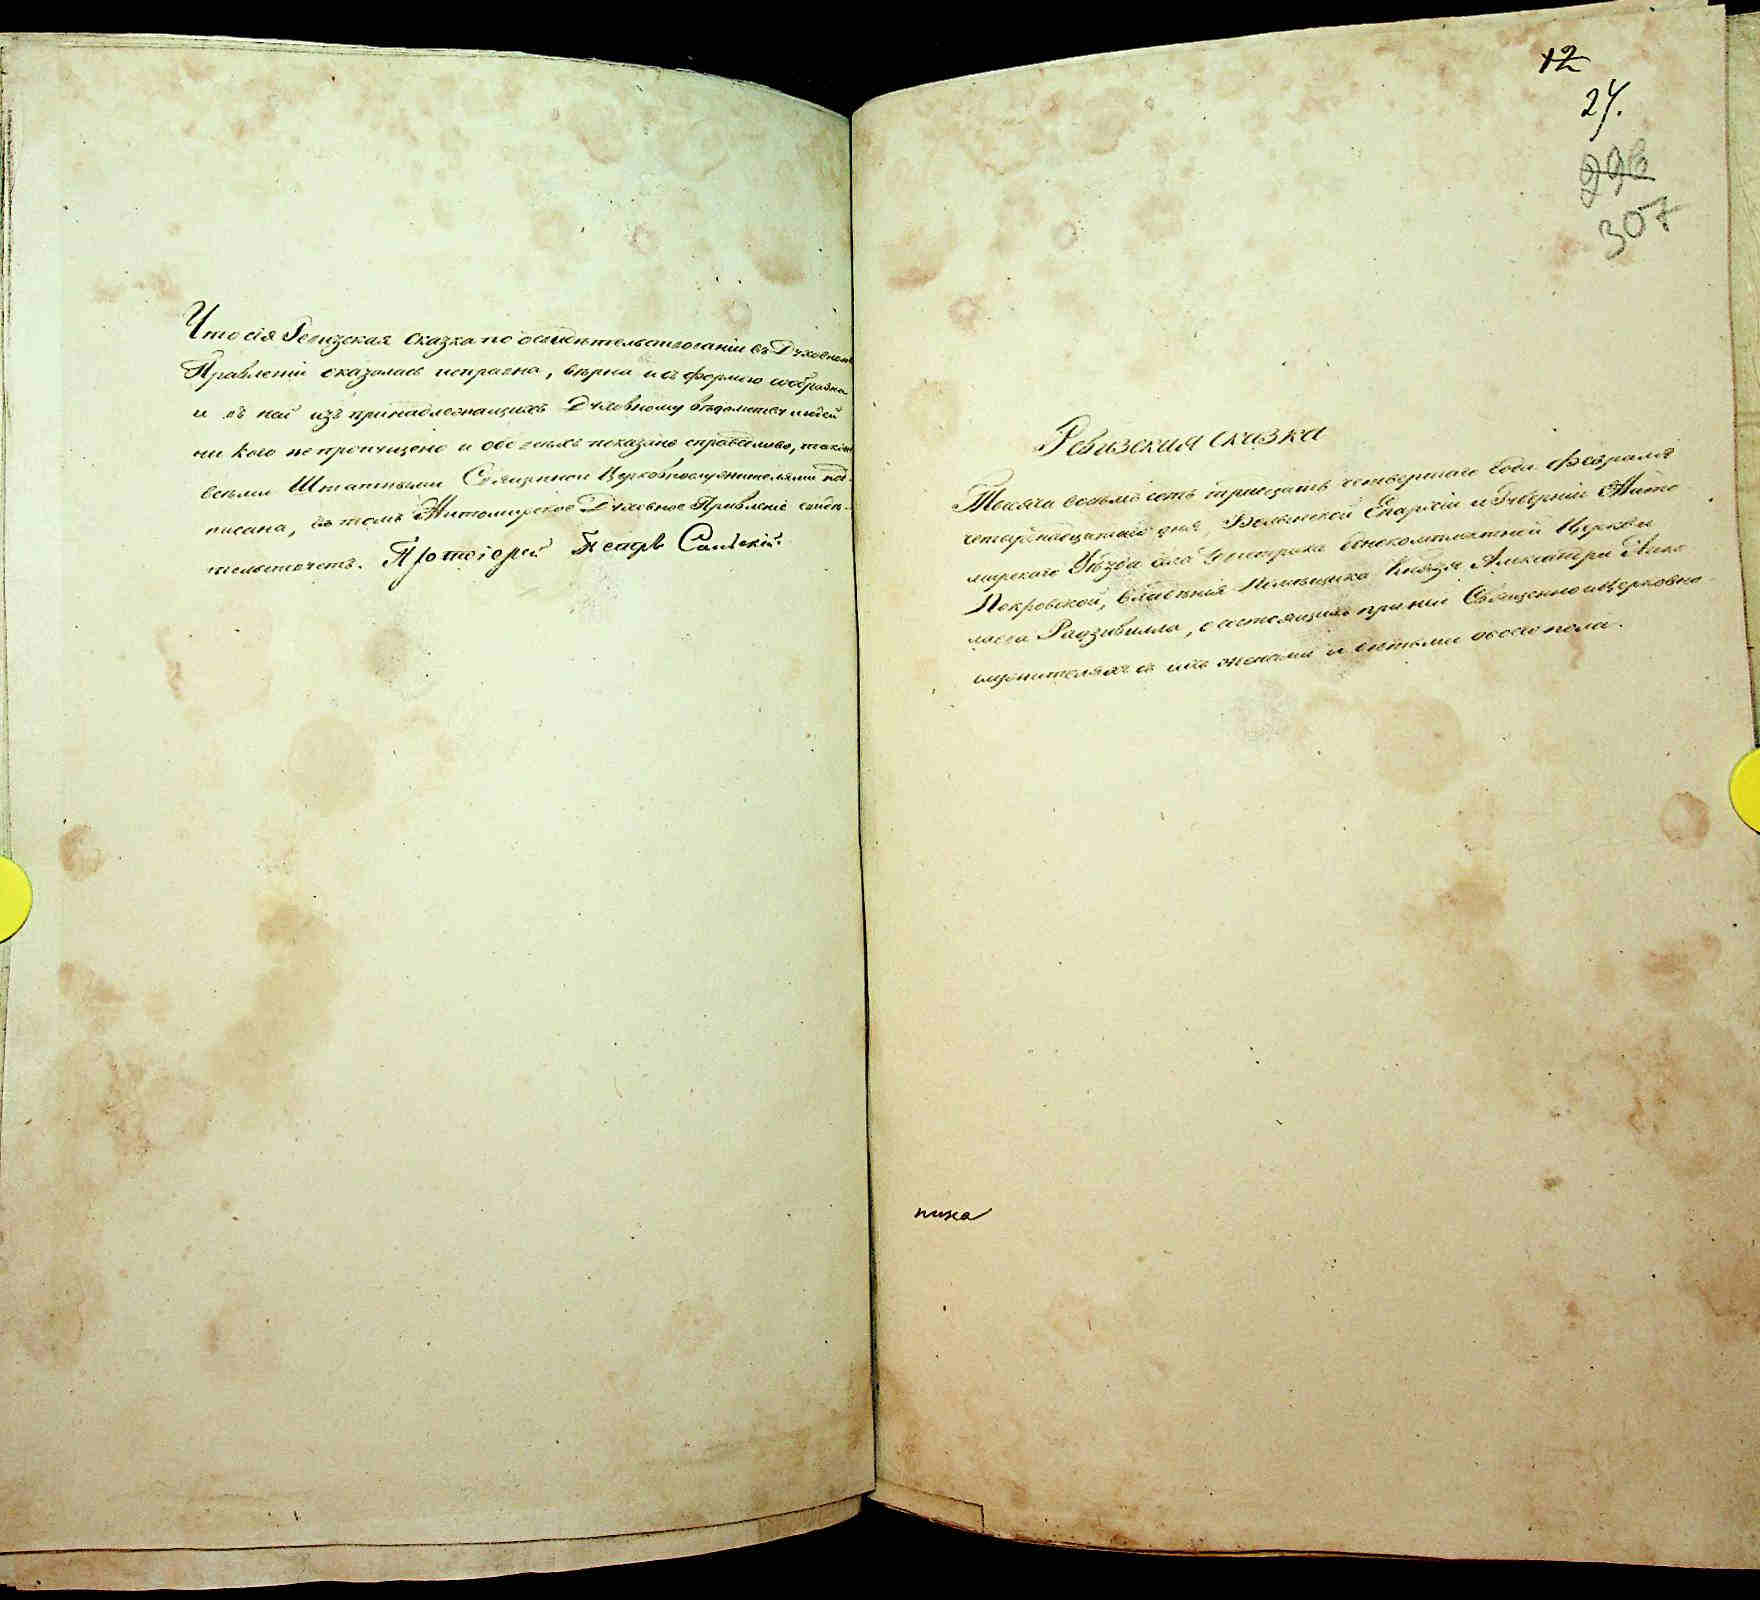 Что сія Ревизская Сказка по освидетельствованіи въ Духовномъ
Правленіи оказалась исправна, вѣрна и съ формою сообразна
и въ ней изъ принадлежащихъ Духовному вѣдомству людей
ни кого не пропущено и обо всемъ показано справедливо, также
всѣми Штатными Священно и Церковнослужителями под-
писана, въ томъ Житомирское Духовное Правленіе свидѣ-
тельствуетъ. Протоіерей Петръ
12
27.
296
307
Ревизская сказка
Тысяча восьмъ сотъ тридцать четвертаго Года Февраля
четырнадцатаго дня, Волынской Епархіи и Губерніи Жито-
мирскаго Уѣзда села Церкви
Покровской, владѣнія Помѣщика Князя Александра
Радзивилла, о состоящихъ при ней Священно и Церковно-
служителяхъ съ ихъ женами и дѣтьми обоего пола.